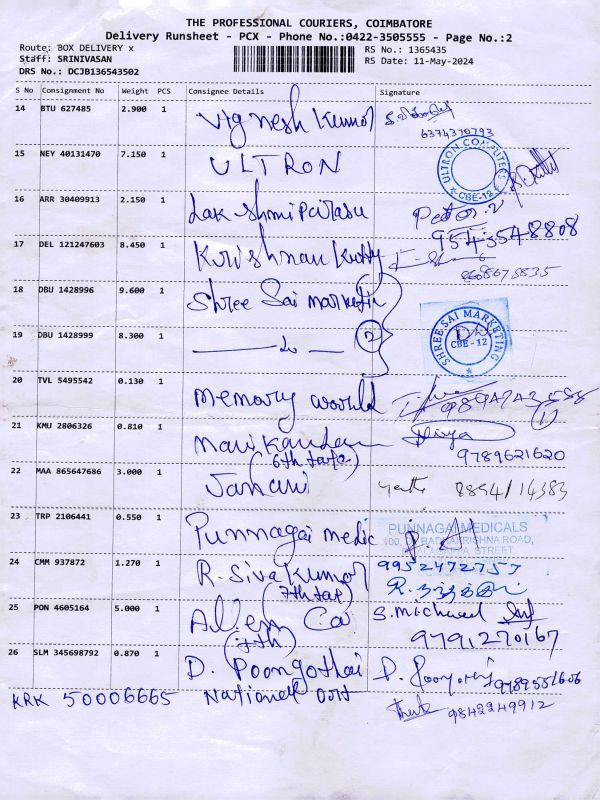 THE PROFESSIONAL COURIERS, COIMBATORE
Delivery Runsheet - PCX - Phone No.:0422-3505555 - Page No.:2
Route: BOX DELIVERY x
RS No.: 1365435
Staff: SRINIVASAN
RS Date: 11-May-2024
DRS No.: DCJB136543502
S No Consignment No Weight PCS Consignee Details Signature
14 BTU 627485 2.900 1 Vignesh Kumar
6374370793
15 NEY 40131470 7.150 1 ULTRON
ULTRON COMPUTERS
* CBE-12 *
16 ARR 30409913 2.150 1 Lakshmi Parasu
9543548808
17 DEL 121247603 8.450 1 Krishnan Kutty
8608675535
18 DBU 1428996 9.600 1 Shree Sai Marketin
SHREE SAI MARKETING
CBE - 12
19 DBU 1428999 8.300 1 2
20 TVL 5495542 0.130 1 Memory world
21 KMU 2806326 0.810 1 Manikandan Divya
(6th 
9789621620
22 MAA 865647686 3.000 1 Janani 8894/14383
23 TRP 2106441 0.550 1 Punnagai medic
PUNNAGAI MEDICALS
24 CMM 937872 1.270 1 R. Siva Kumar 9952472757
(7th 
25 PON 4605164 5.000 1 Allem Ca S. Micheael
(7th)
9791270167
26 SLM 345698792 0.870 1 D. Poongothai D. Poongothai
KRK 50006665 National
9842249912